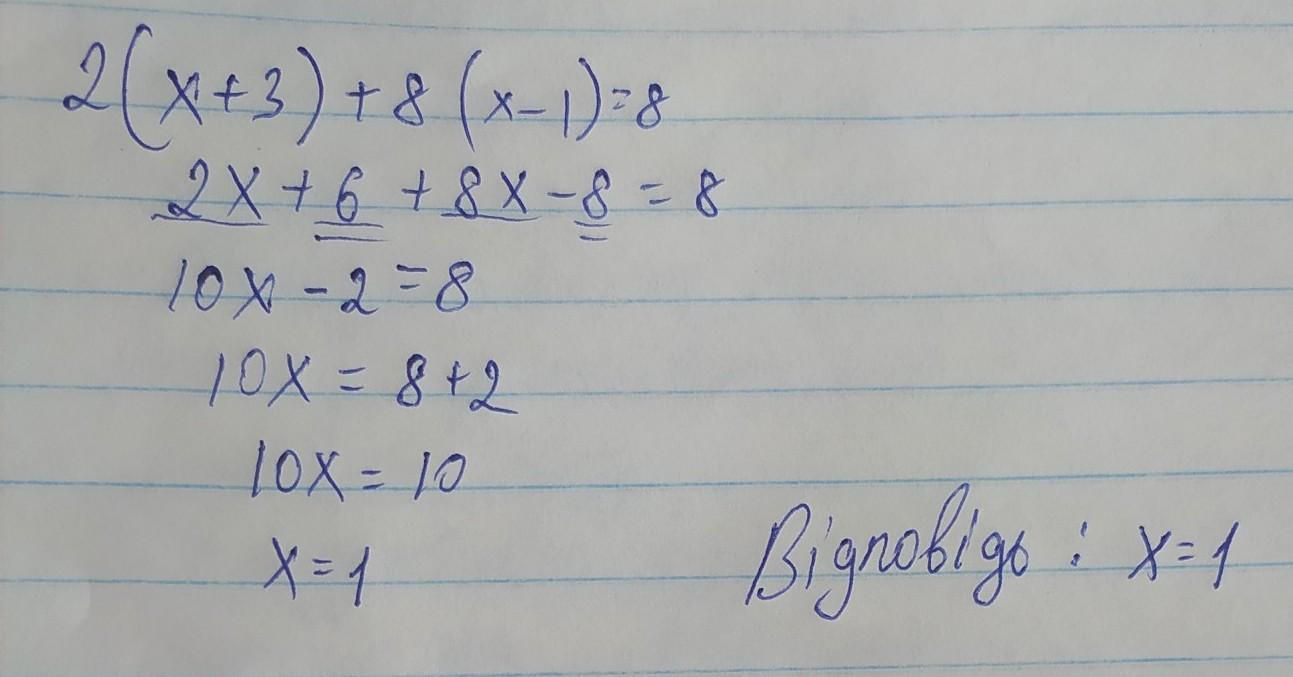 2(x+3)+8(x-1)=8
2x+6+8x-8=8
10x-2=8
10x=8+2
10x=10
x=1
Відповідь: x=1